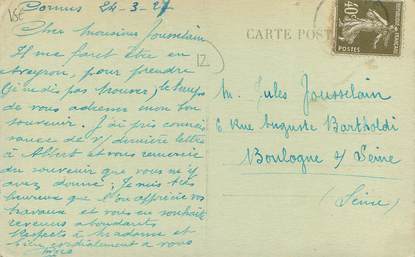 Cornus 24-3-27
Cher Monsieur Jousselain
Il me faut être en
Aveyron, pour prendre
(je ne dis pas trouver) le temps
de vous adresser mon bon
souvenir. J'ai pris connais
sance de v/ dernière lettre
à Albert et vous remercie
du souvenir que vous m'y
avez donné. Je suis très
heureux que l'on apprécie vos
travaux et vous en souhaite
revenus abondants
Respects à Madame et
bien cordialement à vous
CARTE POST
40c
POSTES
12
M. Jules Jousselain
6 Rue Auguste Bartholdi
Boulogne s/ Seine
(Seine)